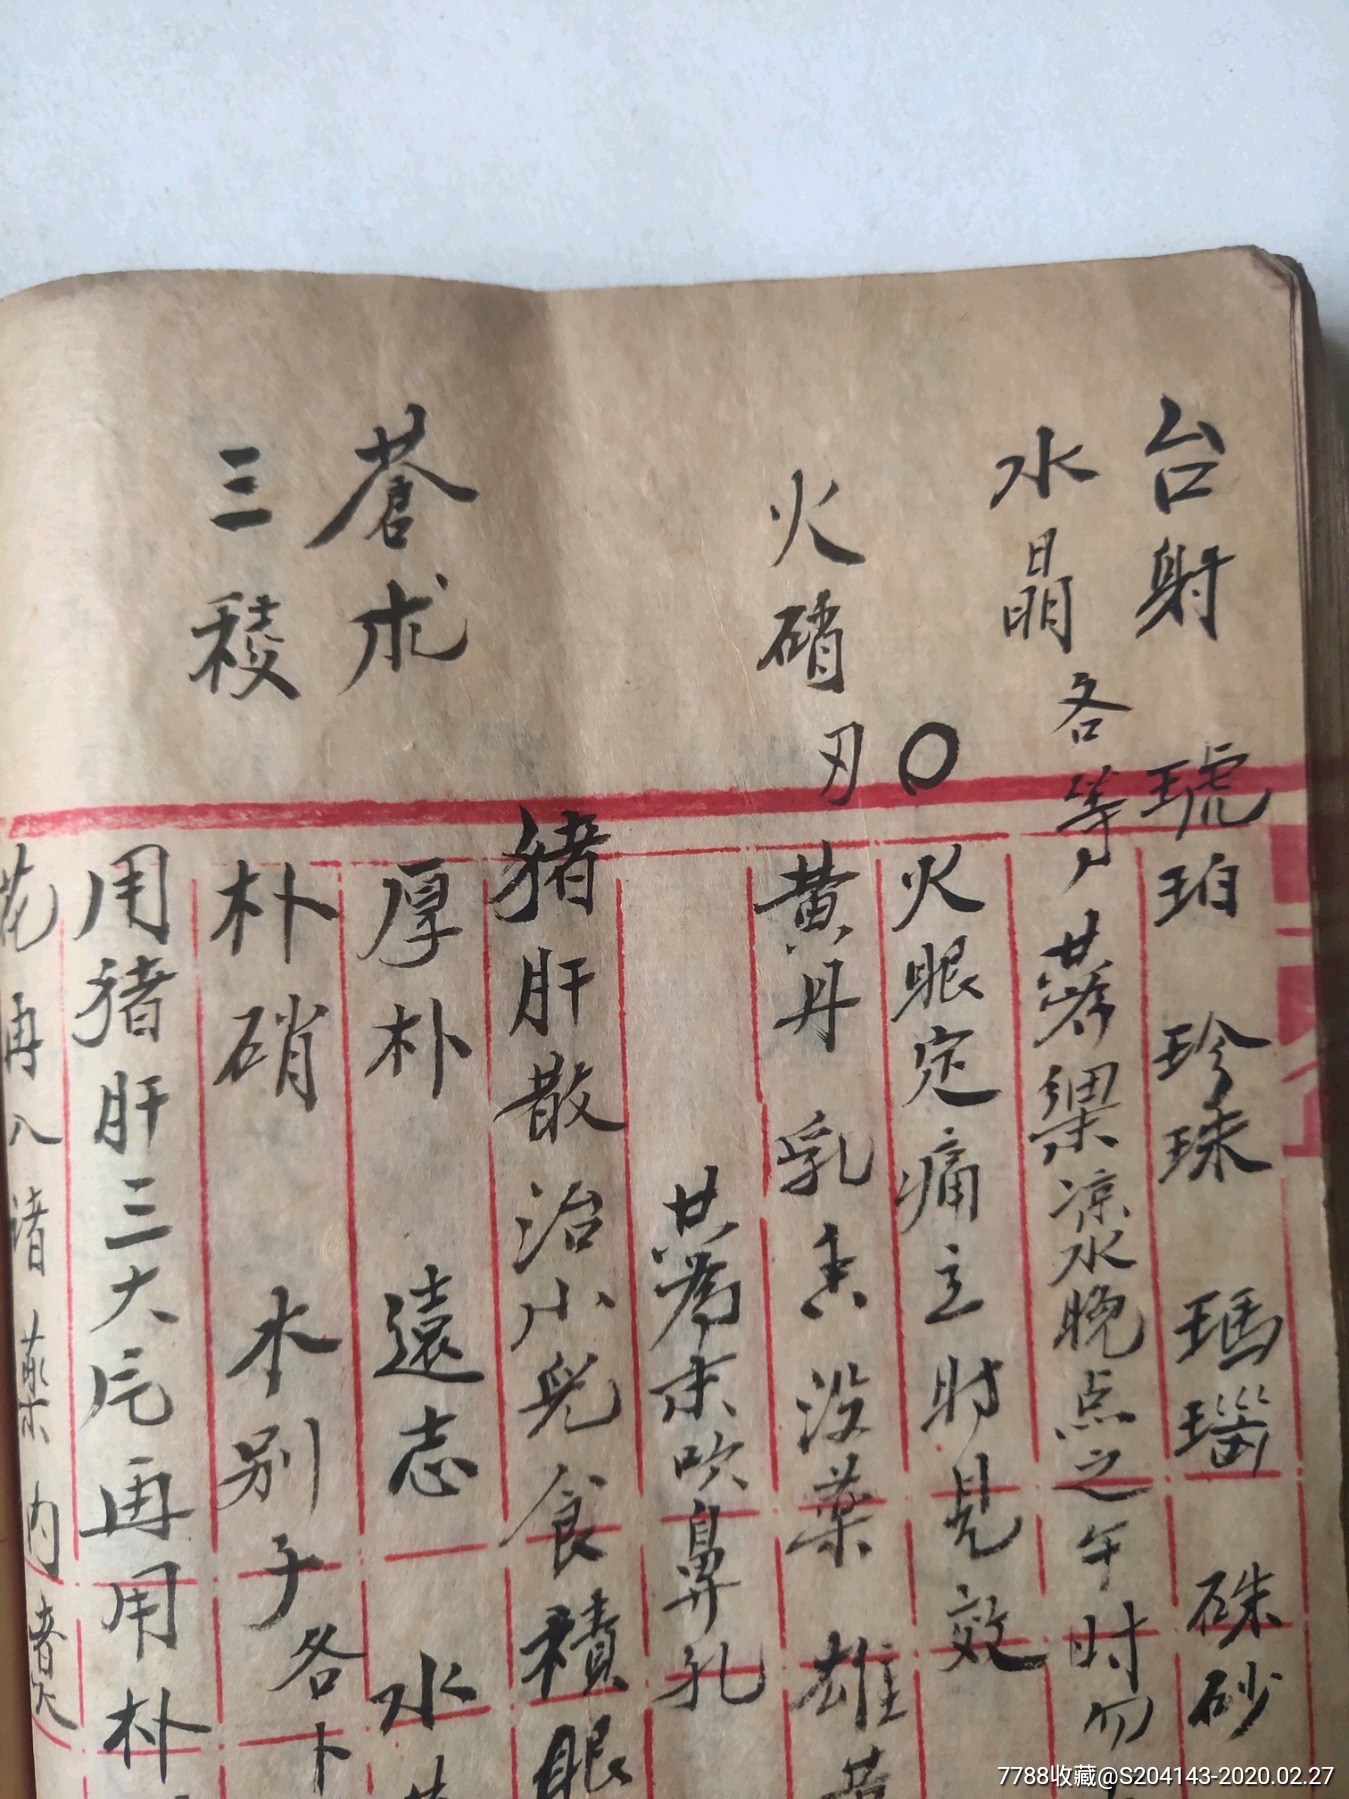 台射 琥珀 珍珠 瑪瑙 硃砂
水晶 各等 共 凉水晚点之午时勿
火眼定痛立时見效
火硝 刃 黄丹 乳香 没藥 雄黄
共為末吹鼻孔
猪肝散治小兒食積眼
蒼朮 厚朴 遠志 水
三稜 朴硝 木别子 各
用猪肝三大片再用朴
花再入诸藥内煮
7788收藏@S204143-2020.02.27